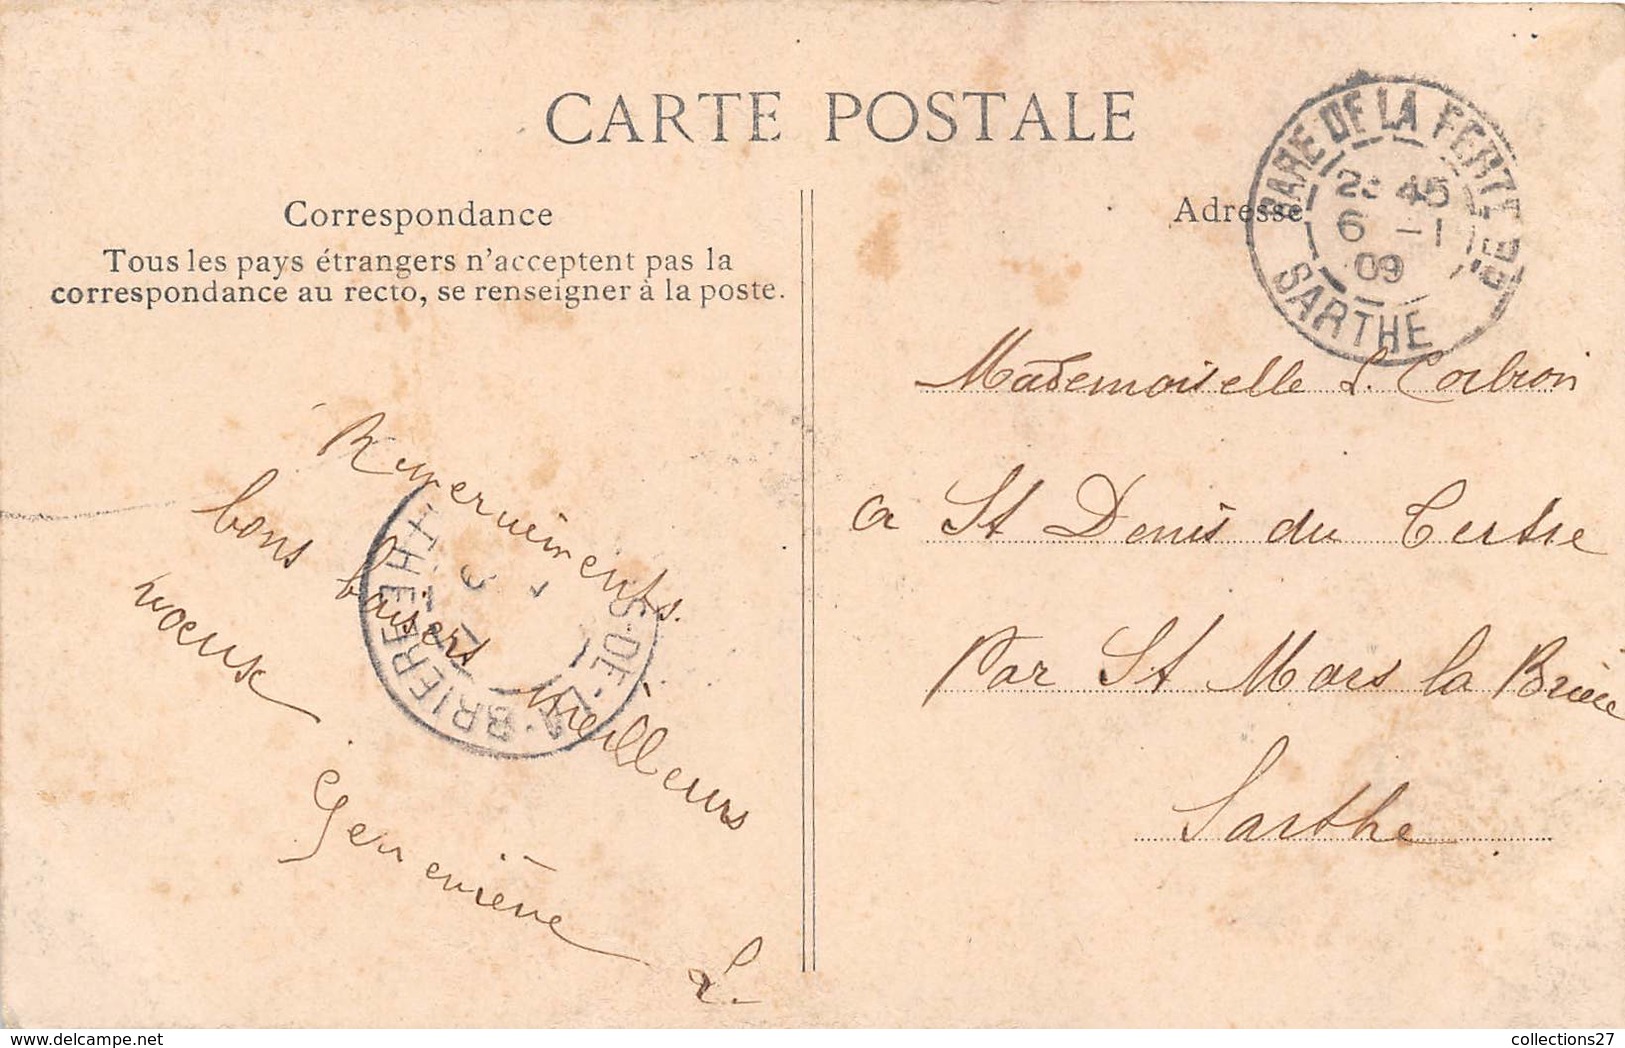 CARTE POSTALE
Correspondance
Tous les pays étrangers n'acceptent pas la
correspondance au recto, se renseigner à la poste.
Adresse
GARE DE LA FERTÉ
45
6 -1
09
SARTHE
bons baisers Meilleurs
voeux
Geneviève L.
S-DE-LA-BRIERE
THE
Mademoiselle L. Corbion
a St Denis du Tertre
Par St Mars la Brière
Sarthe.
delcampe.net
collections27